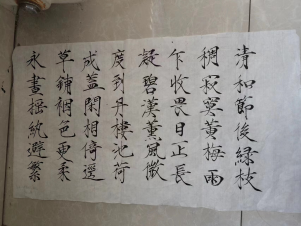 清和節後綠枝
稠寂寞黃梅雨
乍收畏日正長
凝碧漢薰風微
度到丹樓池荷
成蓋閒相倚逕
草鋪裀色更柔
永晝搖紈避繁